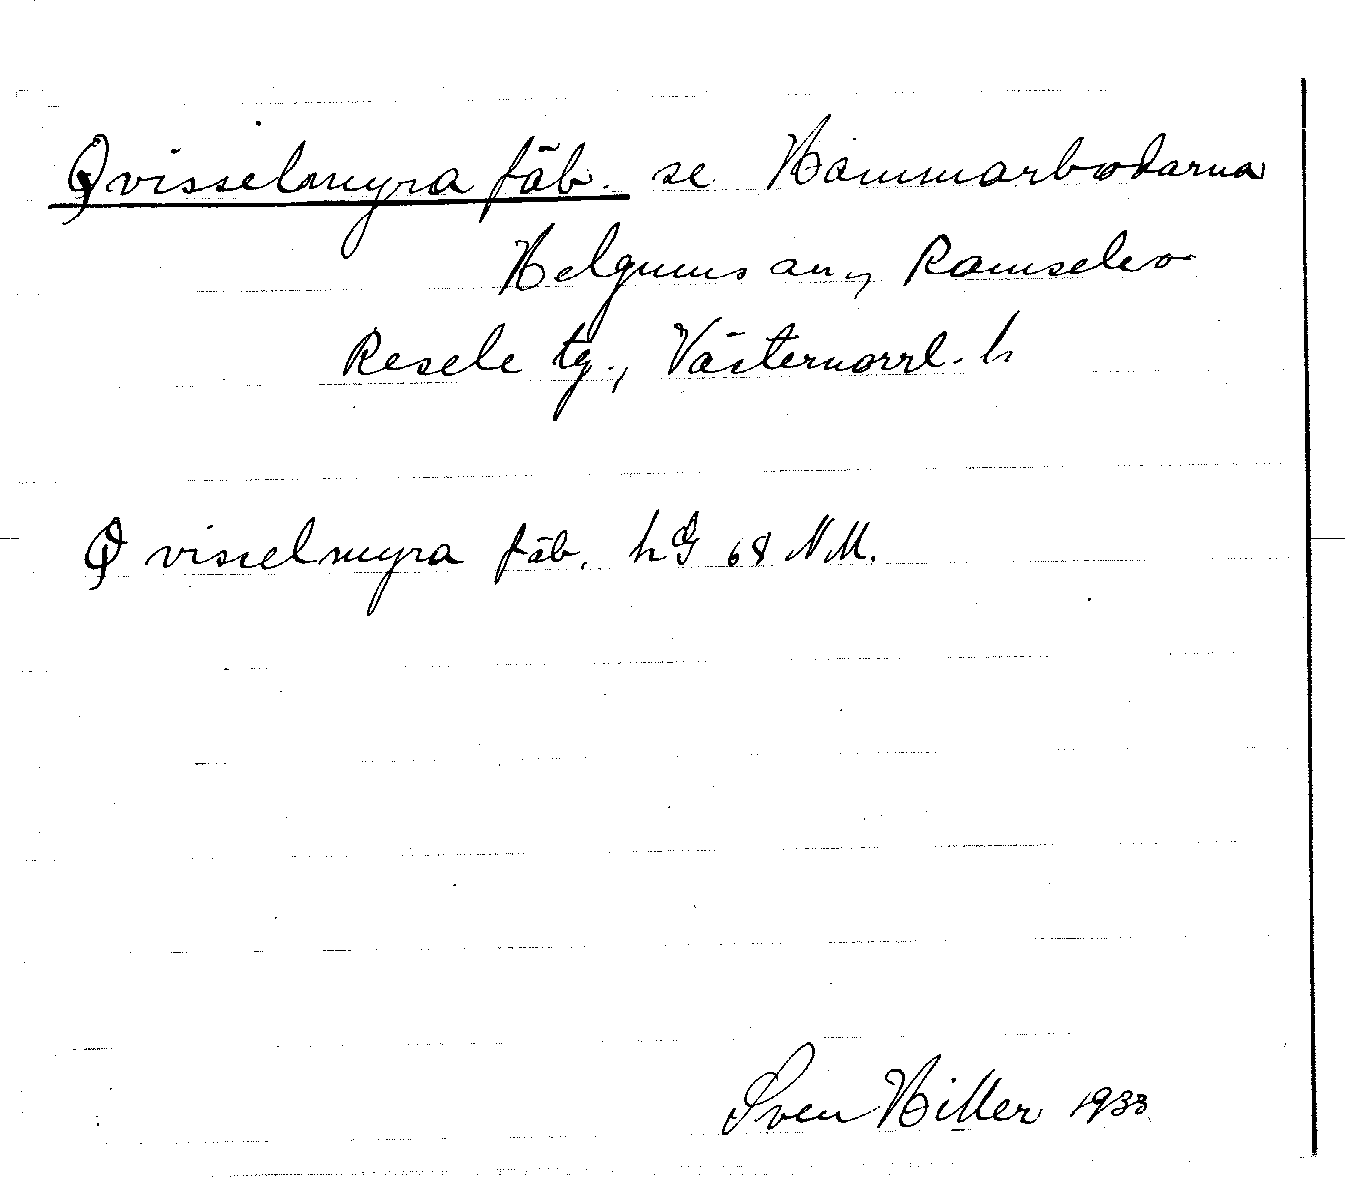 Qvisselmyra fäb. se Hammarbodarna
Helgums an, Ramsele o
Resele tg., Västernorrl. l.
Qvisselmyra fäb. hG 68 NM.
Sven Hiller 1933